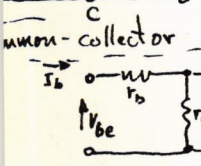 C
mmon-collector
I_b
r_b
V_be
r